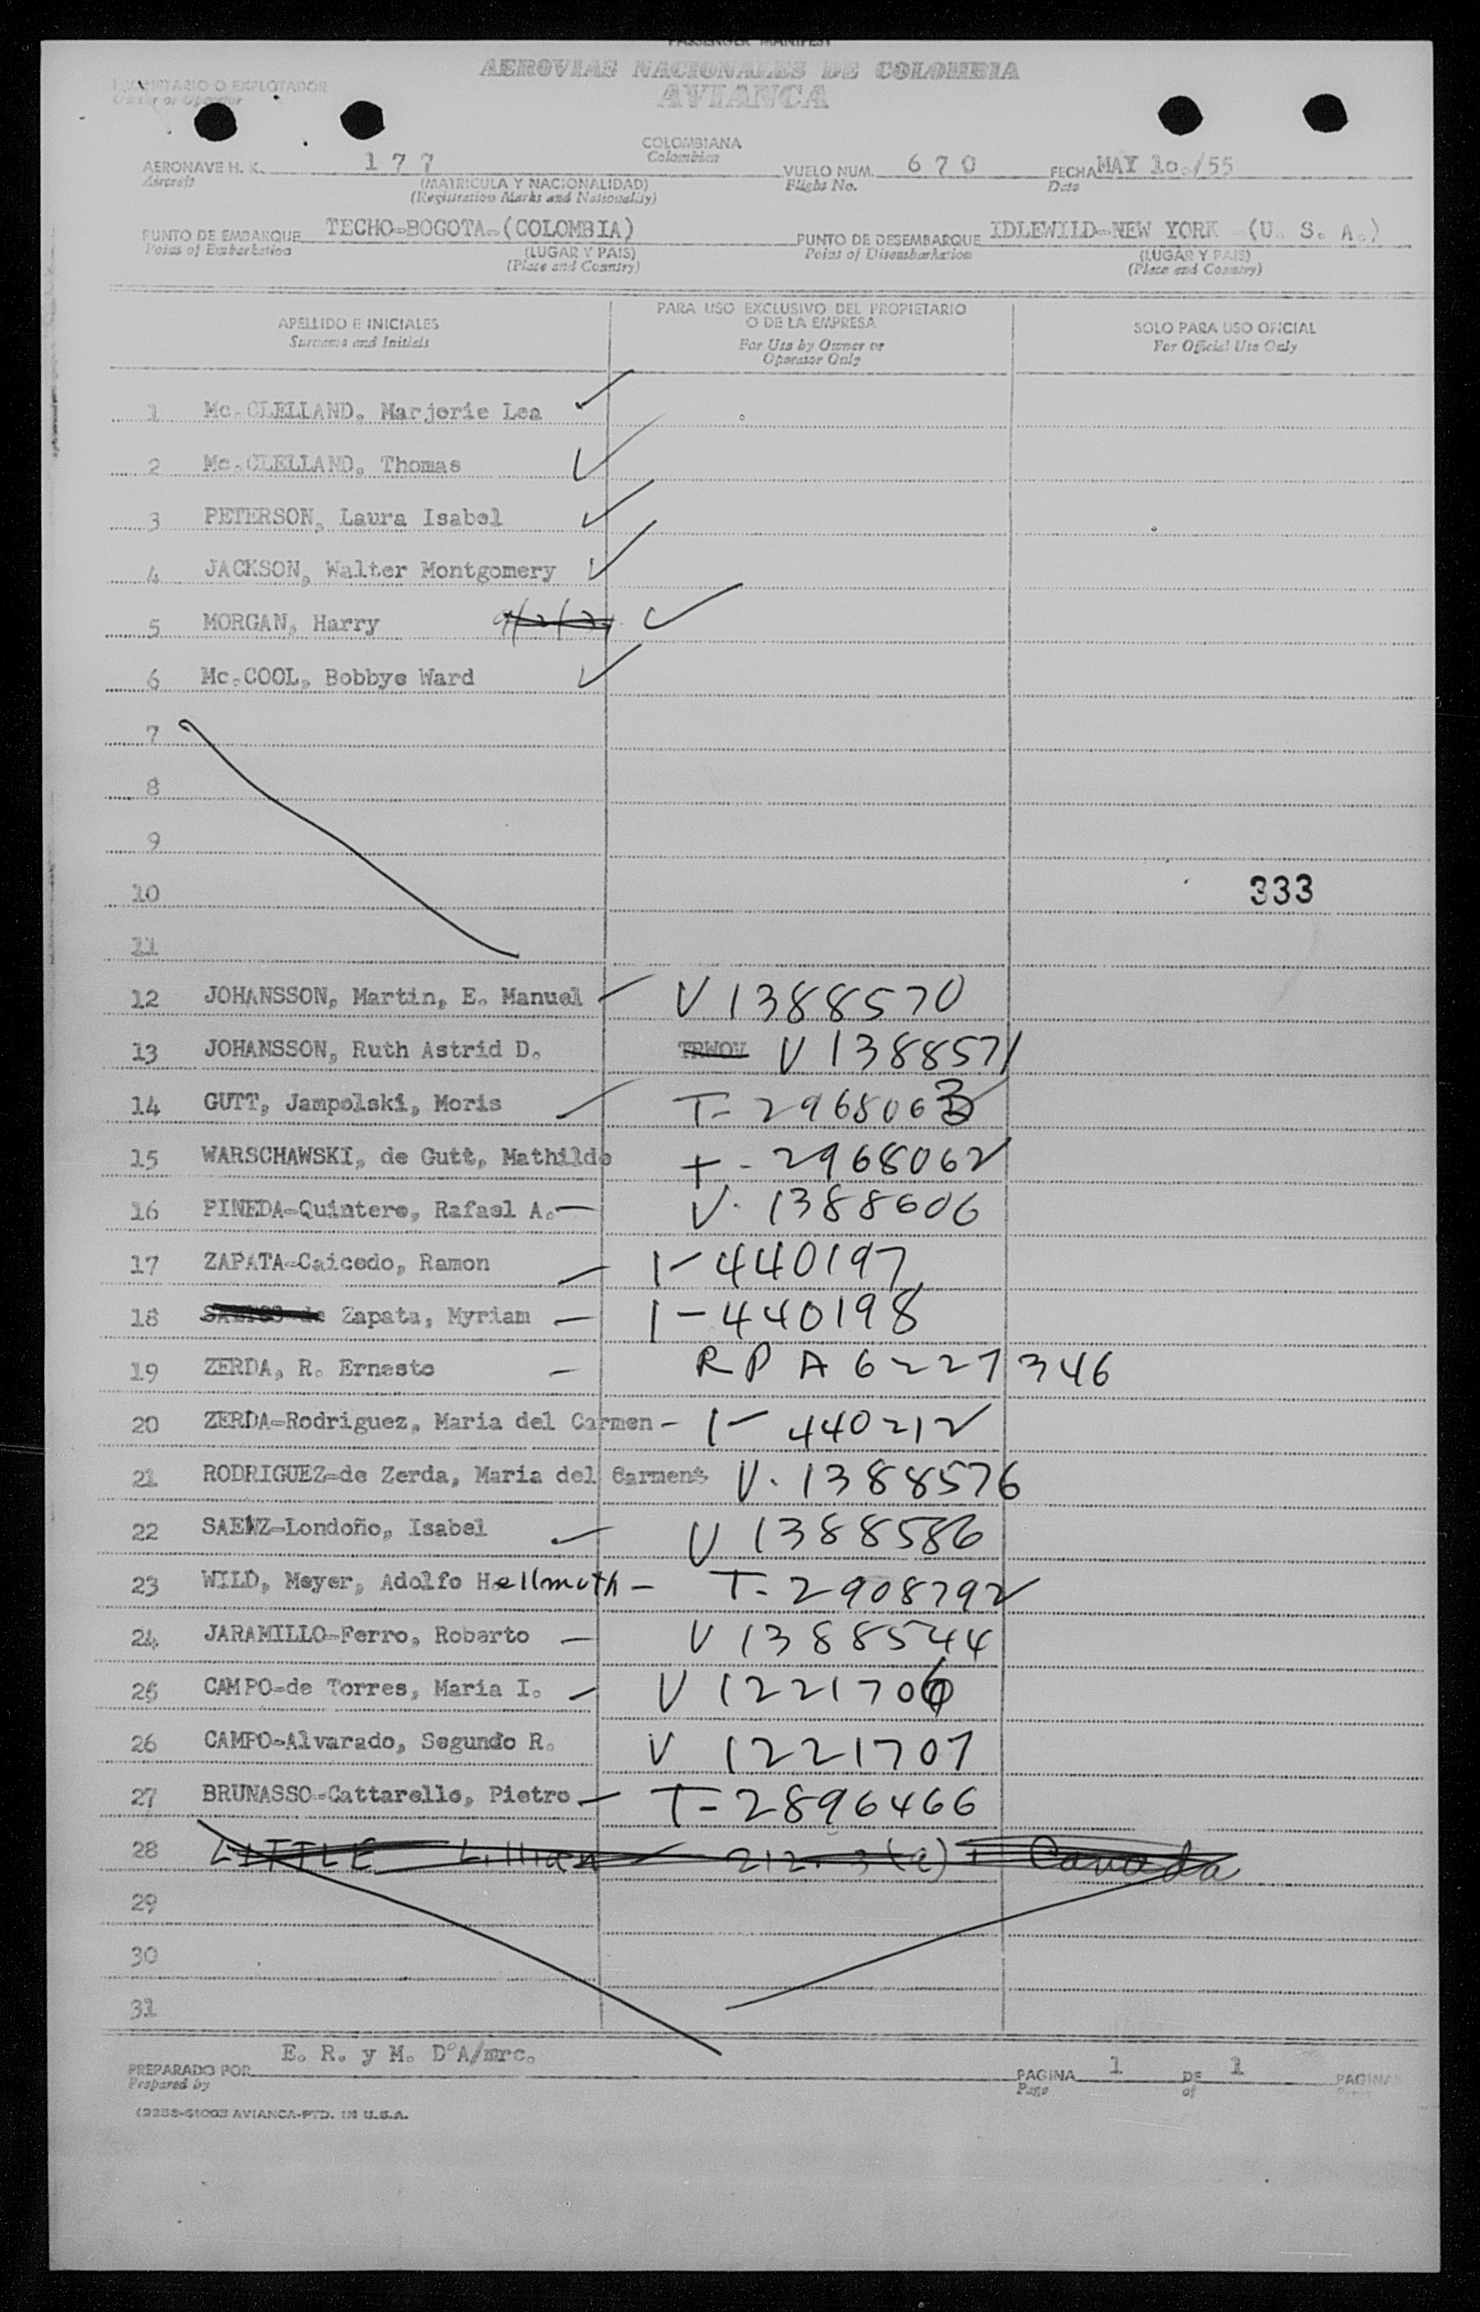 PASSENGER MANIFEST
AEROVIAS NACIONALES DE COLOMBIA
AVIANCA
PROPIETARIO O EXPLOTADOR
Owner or Operator
COLOMBIANA
Colombian
AERONAVE H. K. 177 VUELO NUM. 670 FECHA MAY 10./55
Aircraft (MATRICULA Y NACIONALIDAD) Flight No. Date
(Registration Marks and Nationality)
PUNTO DE EMBARQUE TECHO-BOGOTA-(COLOMBIA) PUNTO DE DESEMBARQUE IDLEWILD-NEW YORK (U. S. A.)
Point of Embarkation (LUGAR Y PAIS) Point of Disembarkation (LUGAR Y PAIS)
(Place and Country) (Place and Country)
APELLIDO E INICIALES PARA USO EXCLUSIVO DEL PROPIETARIO O DE LA EMPRESA SOLO PARA USO OFICIAL
Surname and Initials For Use by Owner or Operator Only For Official Use Only
1 Mc.CLELLAND, Marjorie Lea
2 Mc.CLELLAND, Thomas
3 PETERSON, Laura Isabel
4 JACKSON, Walter Montgomery
5 MORGAN, Harry
6 Mc.COOL, Bobbye Ward
7
8
9
10 333
11
12 JOHANSSON, Martin, E. Manuel V 1388570
13 JOHANSSON, Ruth Astrid D. TRWOV V 1388571
14 GUTT, Jampolski, Moris T-2968063
15 WARSCHAWSKI, de Gutt, Mathilde T-2968062
16 PINEDA-Quintero, Rafael A. V. 1388606
17 ZAPATA-Caicedo, Ramon I-440197
18 de Zapata, Myriam I-440198
19 ZERDA, R. Ernesto R P A 6227346
20 ZERDA-Rodriguez, Maria del Carmen I-440212
21 RODRIGUEZ-de Zerda, Maria del Carmen V. 1388576
22 SAENZ-Londoño, Isabel V 1388586
23 WILD, Meyer, Adolfo Hellmuth T-2908792
24 JARAMILLO-Ferro, Roberto V 1388544
25 CAMPO-de Torres, Maria I. V 1221706
26 CAMPO-Alvarado, Segundo R. V 1221707
27 BRUNASSO-Cattarello, Pietro T-2896466
28 LITTLE Lillian 212.3(a) Canada
29
30
31
PREPARADO POR E. R. y M. D'A/mrc. PAGINA 1 DE 1 PAGINAS
Prepared by Page of
AVIANCA-PTD. IN U.S.A.